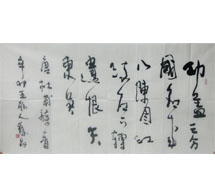 功盖三分
國名成
八陣图江
流石不轉
遺恨失
吞吴
唐杜甫